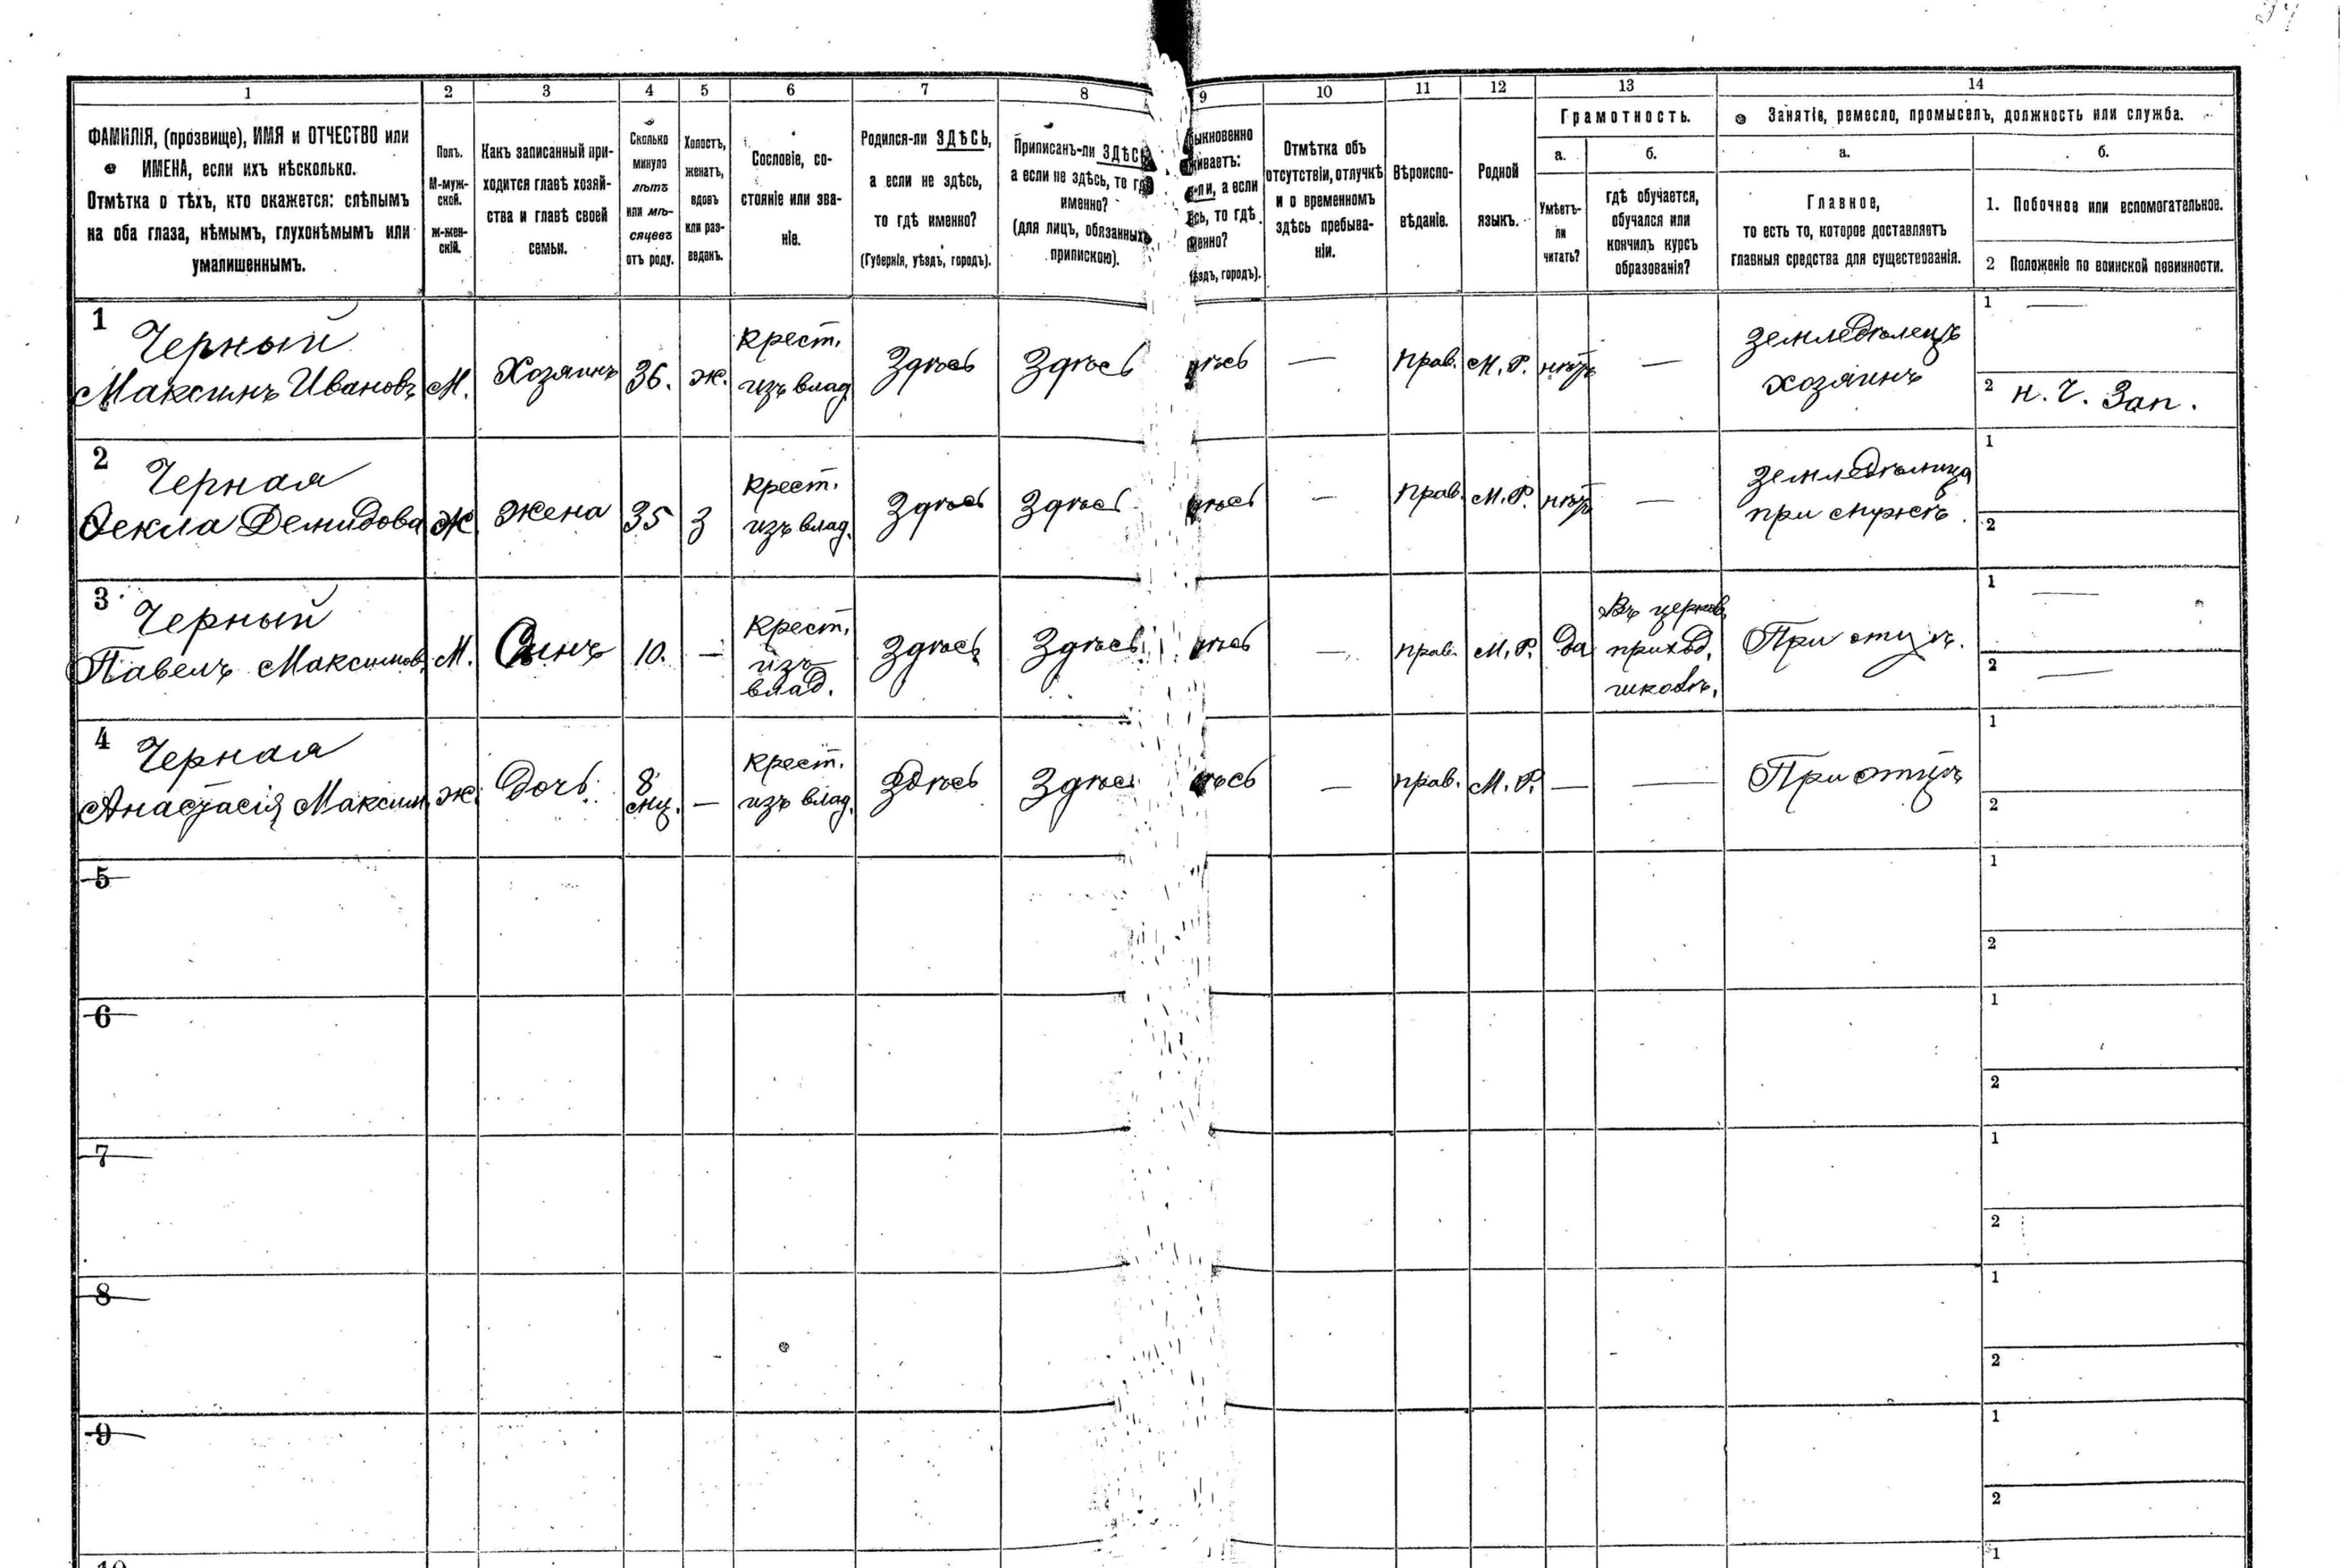 1 2 3 4 5 6 7 8 9 10 11 12 13 14
ФАМИЛІЯ, (прозвище), ИМЯ и ОТЧЕСТВО или
ИМЕНА, если ихъ нѣсколько.
Отмѣтка о тѣхъ, кто окажется: слѣпымъ
на оба глаза, нѣмымъ, глухонѣмымъ или
умалишеннымъ.
Полъ.
М-муж-
ской.
Ж-жен-
скій.
Какъ записанный при-
ходится главѣ хозяй-
ства и главѣ своей
семьи.
Сколько
минуло
лѣтъ
или мѣ-
сяцевъ
отъ роду.
Холостъ,
женатъ,
вдовъ
или раз-
веденъ.
Сословіе, со-
стояніе или зва-
ніе.
Родился-ли ЗДѢСЬ,
а если не здѣсь,
то гдѣ именно?
(Губернія, уѣздъ, городъ).
Приписанъ-ли ЗДѢСЬ
а если не здѣсь, то гдѣ
именно?
(для лицъ, обязанныхъ
припискою).
ыкновенно
живаетъ:
ли, а если
сь, то гдѣ
менно?
ѣздъ, городъ).
Отмѣтка объ
отсутствіи, отлучкѣ
и о временномъ
здѣсь пребыва-
ніи.
Вѣроиспо-
вѣданіе.
Родной
языкъ.
Грамотность.
а.
Умѣетъ-
ли
читать?
б.
гдѣ обучается,
обучался или
кончилъ курсъ
образованія?
Занятіе, ремесло, промыселъ, должность или служба.
а.
Главное,
то есть то, которое доставляетъ
главныя средства для существованія.
б.
1. Побочное или вспомогательное.
2 Положеніе по воинской повинности.
1
Черный
Максимъ Ивановъ
М.
Хозяинъ
36.
ж.
крест.
изъ влад.
Здѣсь
Здѣсь
ѣсь
—
прав.
М. Р.
нѣтъ
—
земледѣлецъ
хозяинъ
1 —
2 н. ч. Зап.
2
Черная
Ѳекла Демидова
Ж.
жена
35
З
крест.
изъ влад.
Здѣсь
Здѣсь
ѣсь
—
прав.
М. Р.
нѣтъ
—
земледѣлица
при мужѣ.
1
2
3
Черный
Павелъ Максимов.
М.
Сынъ
10.
—
крест.
изъ
влад.
Здѣсь
Здѣсь
ѣсь
—
прав.
М. Р.
да
Въ церков.
приход.
школѣ.
При отцѣ.
1 —
2 —
4
Черная
Анастасія Максим.
ж.
Дочь
8
мц.
—
крест.
изъ влад.
Здѣсь
Здѣсь
ѣсь
—
прав.
М. Р.
—
—
При отцѣ
1
2
5
1
2
6
1
2
7
1
2
8
1
2
9
1
2
10
1